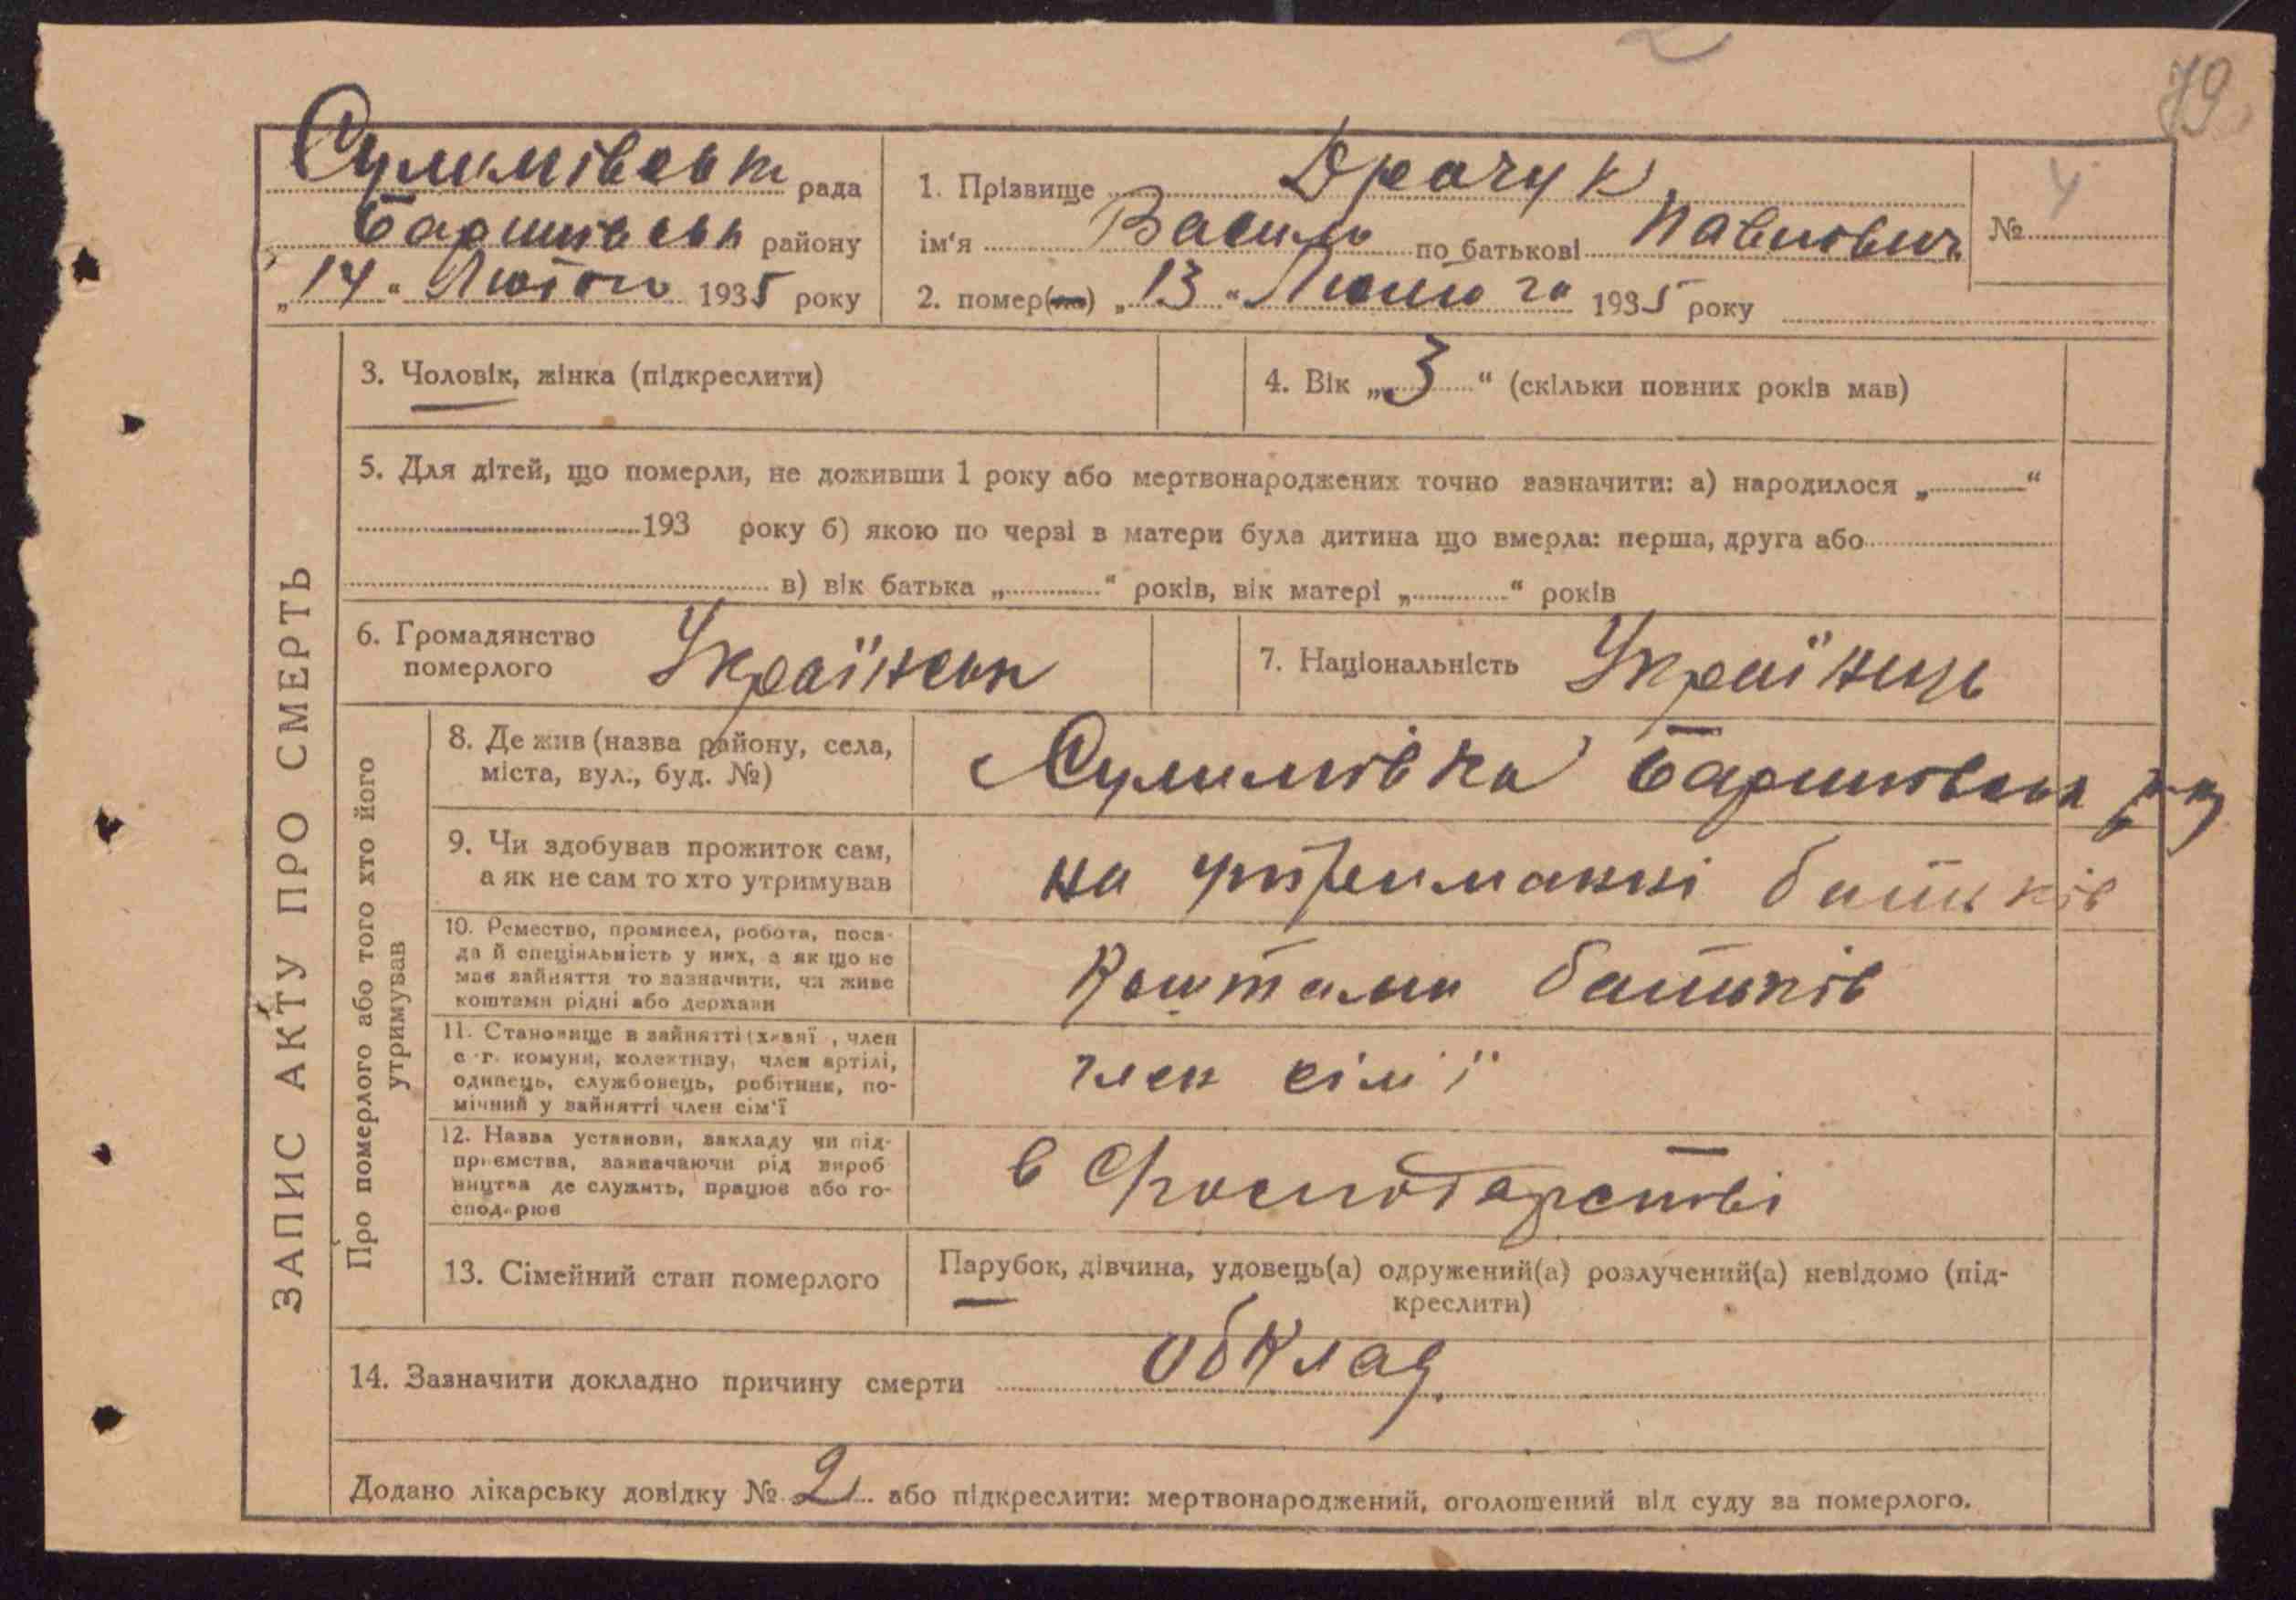 79
Сулимівськ рада
Баришівськ району
„14“ Лютого 1935 року
1. Прізвище Драчук
ім'я Василь по батькові Павлович
№ 4
2. помер(ла) „13“ Лютого 1935 року
ЗАПИС АКТУ ПРО СМЕРТЬ
3. Чоловік, жінка (підкреслити)
4. Вік „3“ (скільки повних років мав)
5. Для дітей, що померли, не доживши 1 року або мертвонароджених точно зазначити: а) народилося „ “
193 року б) якою по черзі в матери була дитина що вмерла: перша, друга або
в) вік батька „ “ років, вік матері „ “ років
6. Громадянство
померлого Українськ
7. Національність Українць
Про померлого або того хто його
утримував
8. Де жив (назва району, села,
міста, вул., буд. №)
Сулимівка Баришівськ р-ну
9. Чи здобував прожиток сам,
а як не сам то хто утримував
на утриманні батьків
10. Ремество, промисел, робота, поса-
да й спеціяльність у них, а як що не
мав зайняття то зазначити, чи живе
коштами рідні або держави
Коштами батьків
11. Становище в зайнятті (хазяї, член
с.-г. комуни, колективу, член артілі,
одинець, службовець, робітник, по-
мічний у зайнятті член сім'ї
член сім'ї
12. Назва установи, закладу чи під-
приємства, зазначаючи рід вироб
ництва де служить, працює або го-
сподарює
в Господарстві
13. Сімейний стан померлого
Парубок, дівчина, удовець(а) одружений(а) розлучений(а) невідомо (під-
креслити)
14. Зазначити докладно причину смерти обклад
Додано лікарську довідку № 2 або підкреслити: мертвонароджений, оголошений від суду за померлого.